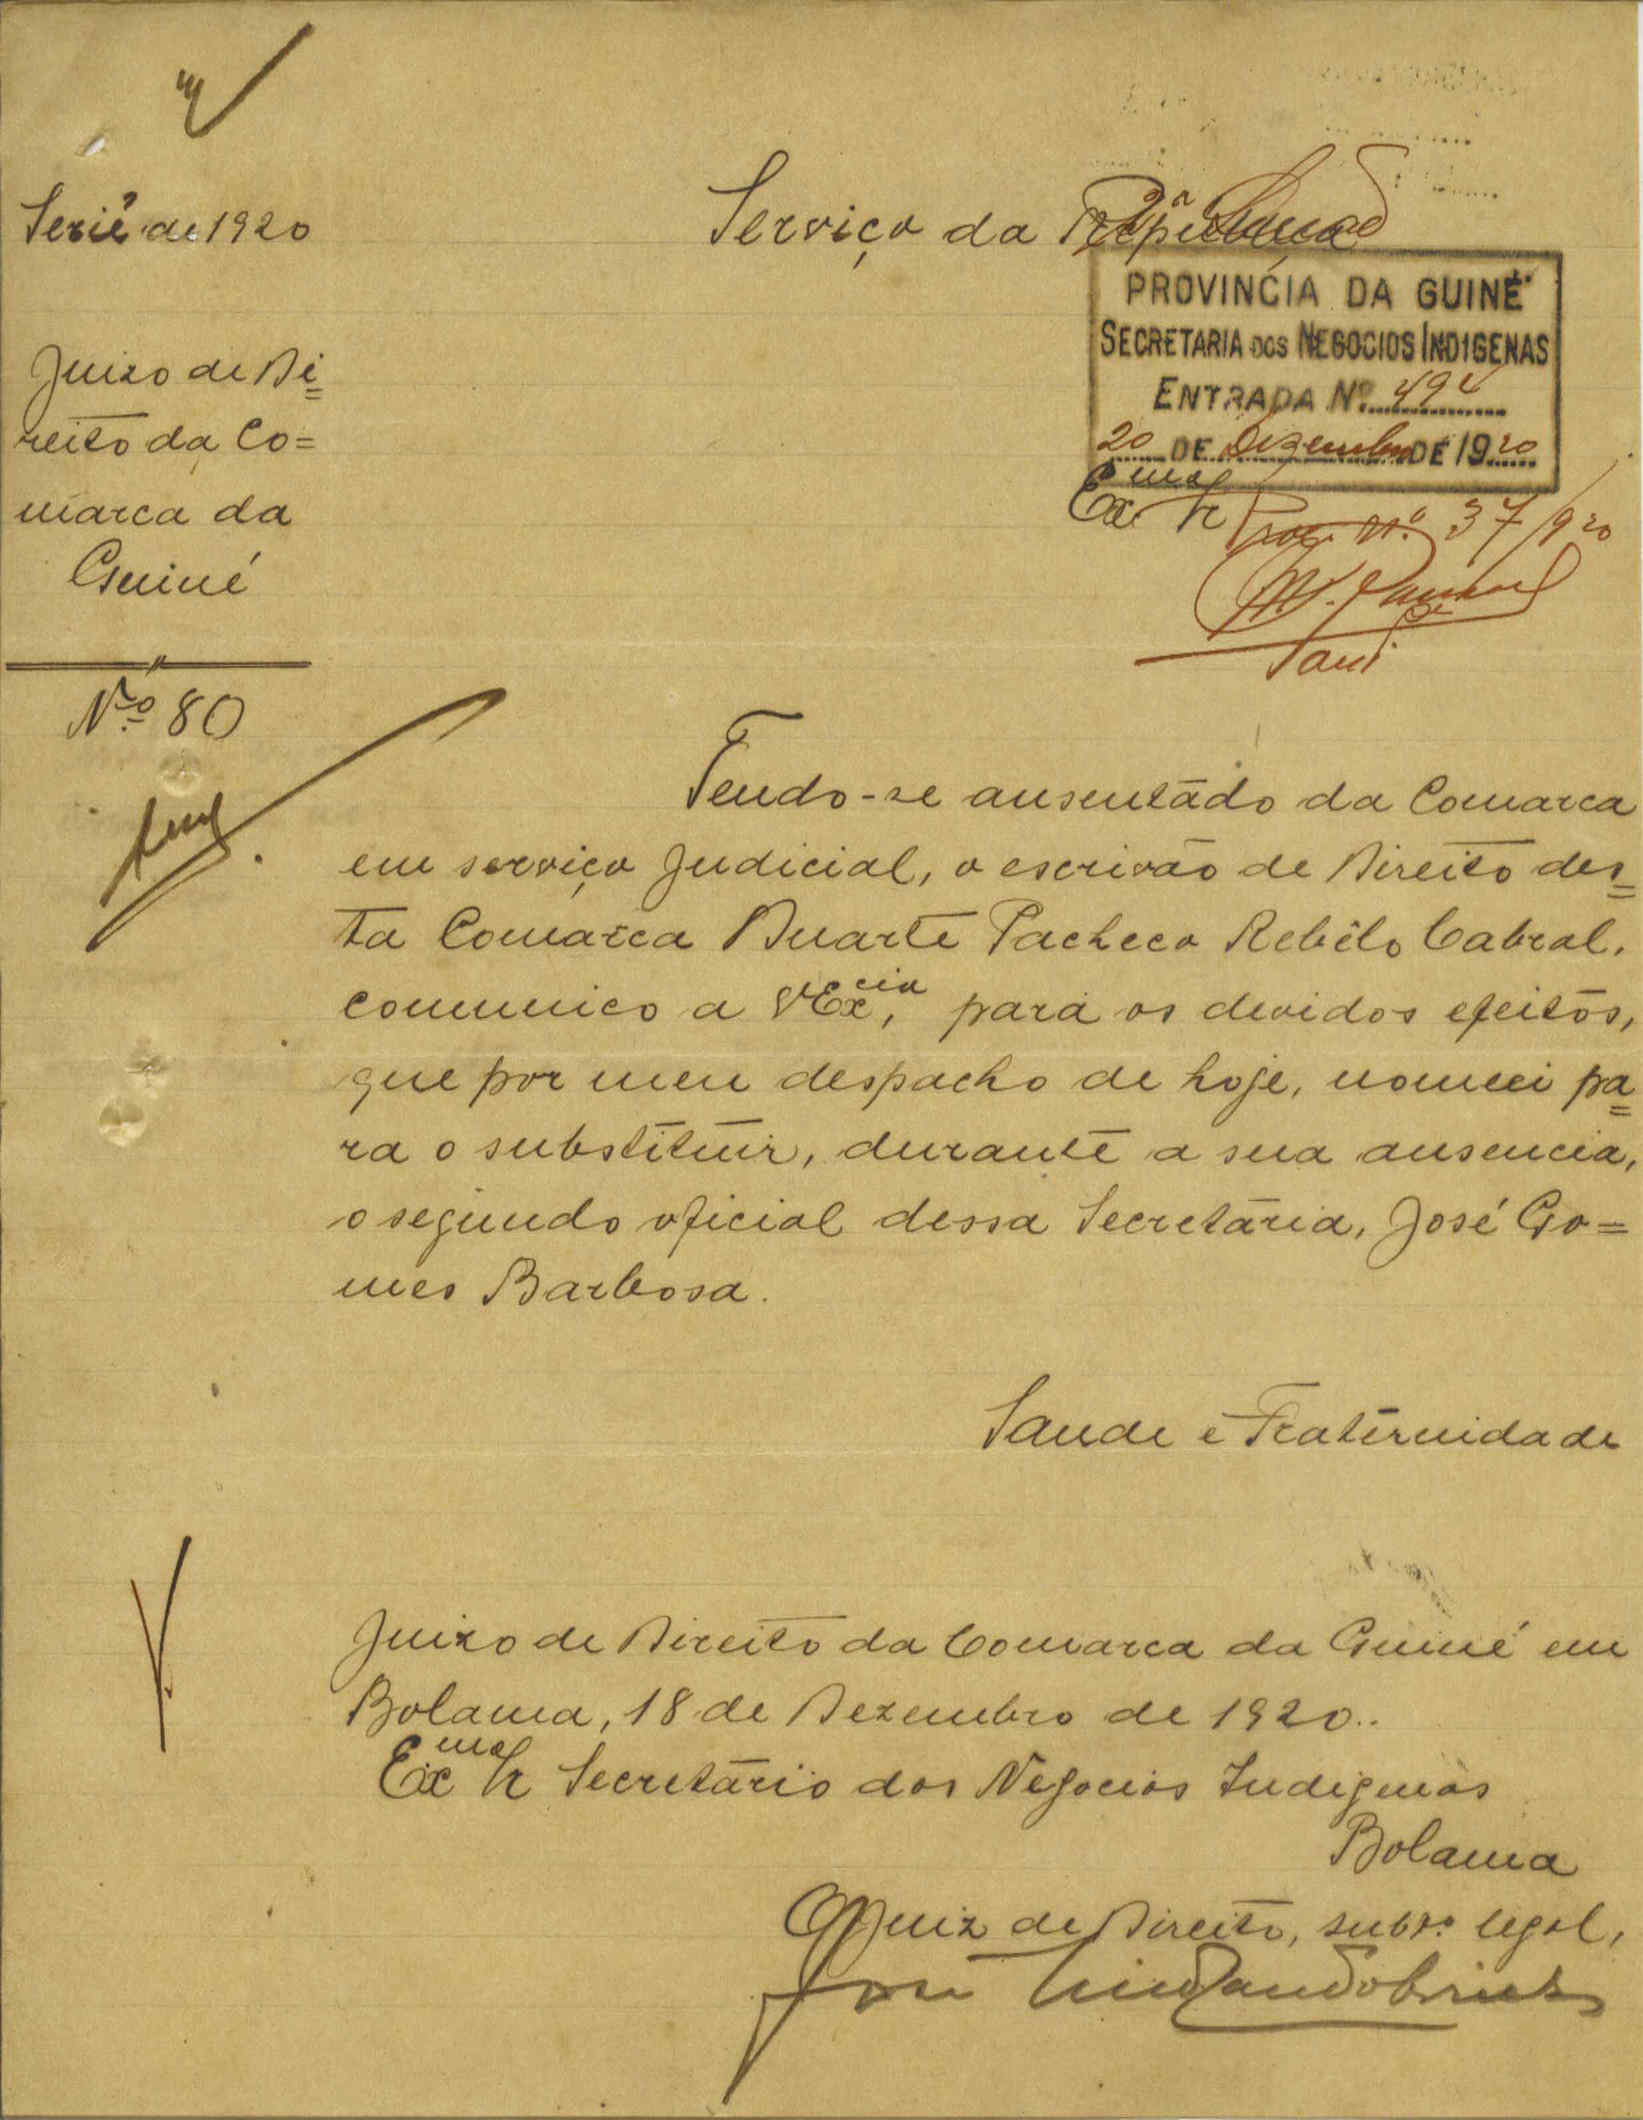 Serie de 1920
Serviço da Republica
Juizo de Di=
reito da Co=
marca da
Guiné
Nº 80
PROVINCIA DA GUINÉ
SECRETARIA DOS NEGOCIOS INDIGENAS
ENTRADA Nº 494
20 DE Dezembro DE 1920
Exmo Sr
Proc. Nº 37/920
Tendo-se ausentado da Comarca
em serviço Judicial, o escrivão de Direito des=
ta Comarca Duarte Pacheco Rebêlo Cabral,
comunico a VExcia, para os devidos efeitos,
que por meu despacho de hoje, nomeei pa=
ra o substituir, durante a sua ausencia,
o segundo oficial dessa Secretaria, José Go=
mes Barbosa.
Saude e Fraternidade
Juizo de Direito da Comarca da Guiné em
Bolama, 18 de Dezembro de 1920.
Exmo Sr Secretario dos Negocios Indigenas
Bolama
O Juiz de Direito, subto legal,
José